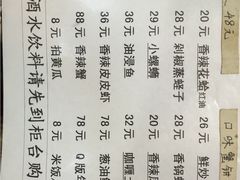 48元
口味蟹钳
20元 香辣花蛤 红油 26元 鲜炒
28元 剁椒蒸蛏子 28元 香锅
29元 小螺蛳 20元 香辣
36元 油浸鱼 32元 咖喱
36元 香辣皮皮虾 78元 葱油
88元 香辣蟹 78元 Q版
8元 拍黄瓜 8元 米饭
酒水饮料请先到柜台购